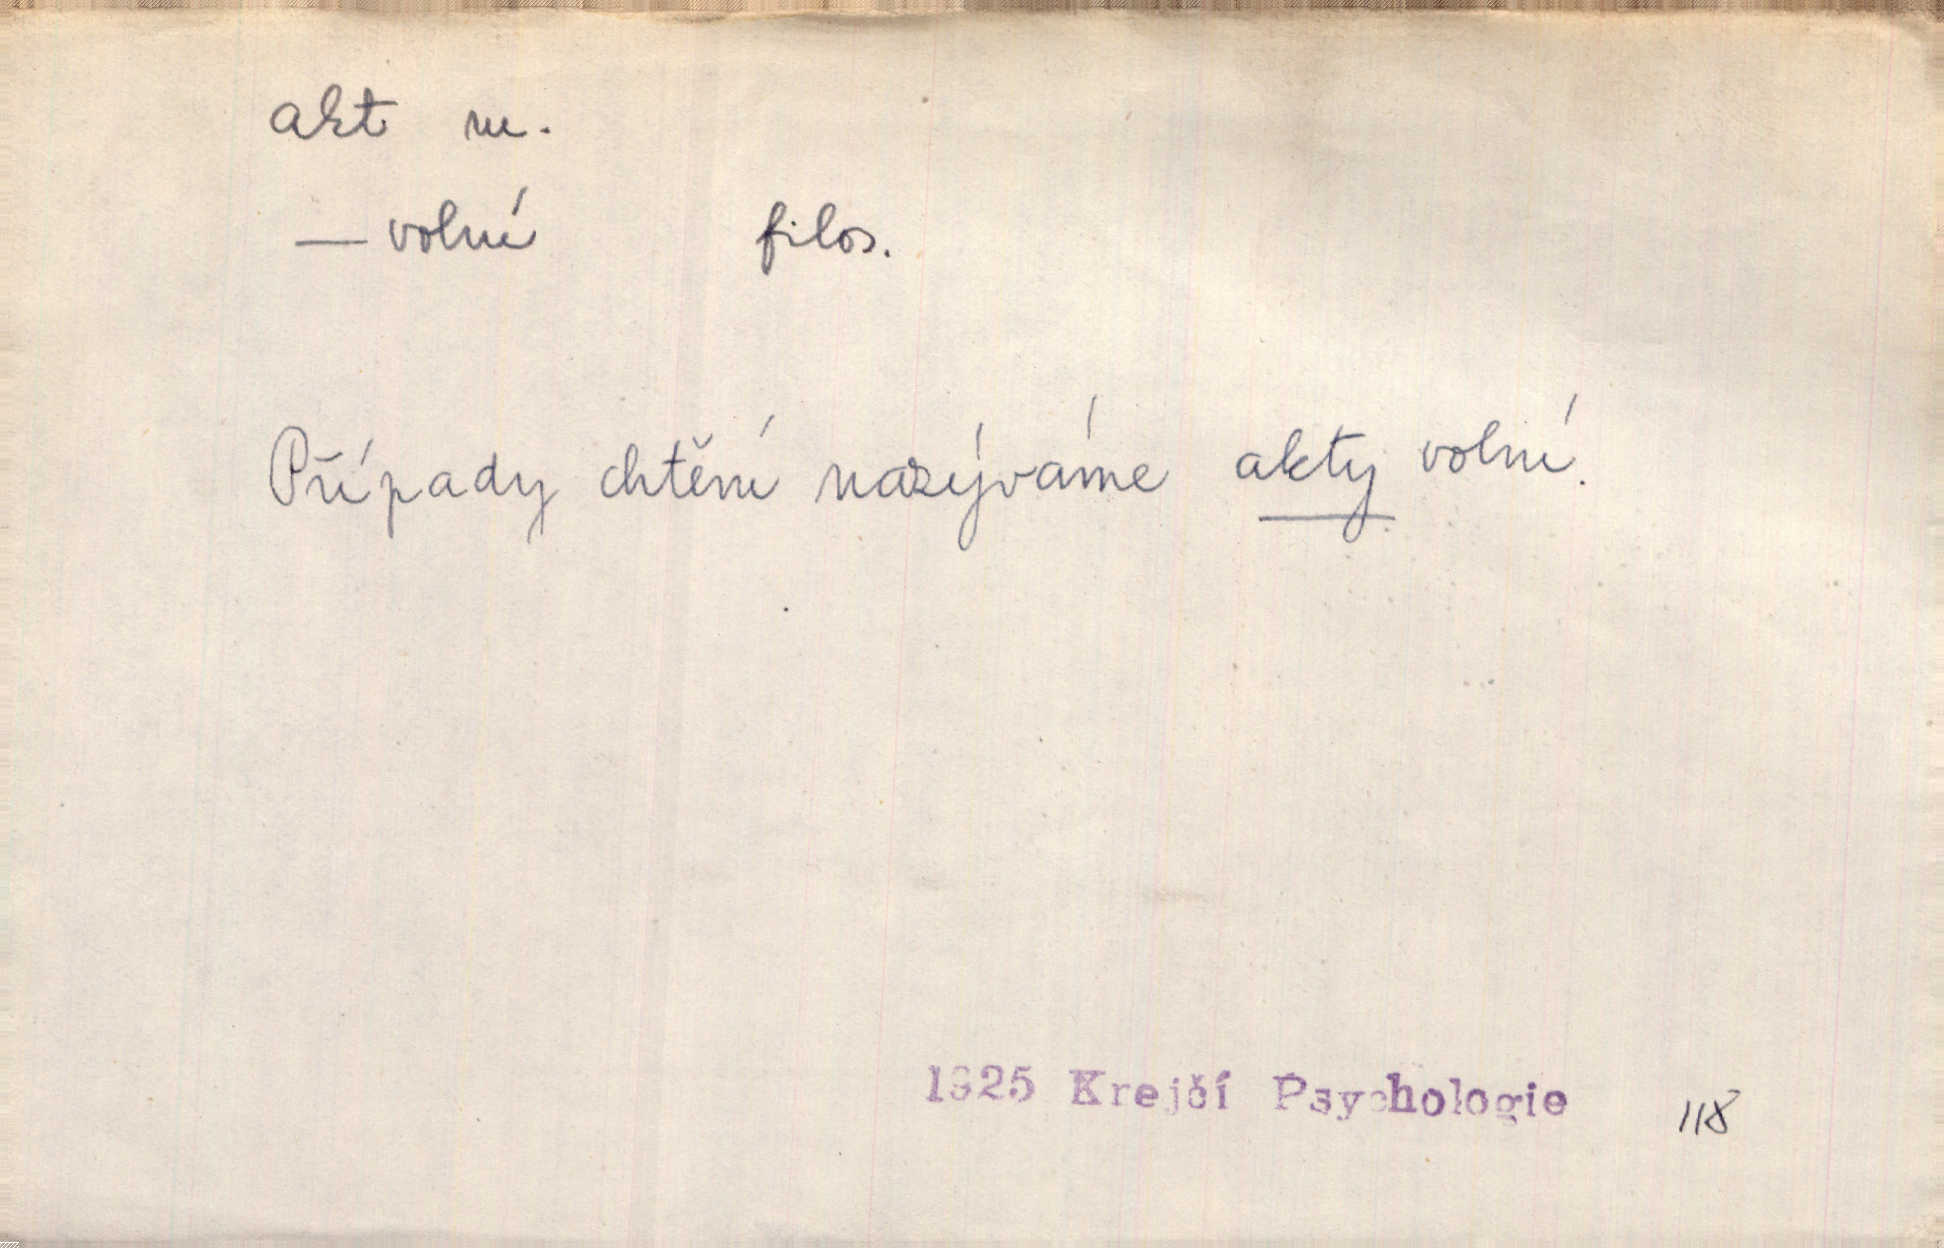 akt m.
— volní filos.
Případy chtění nazýváme akty volní.
1925 Krejčí Psychologie 118